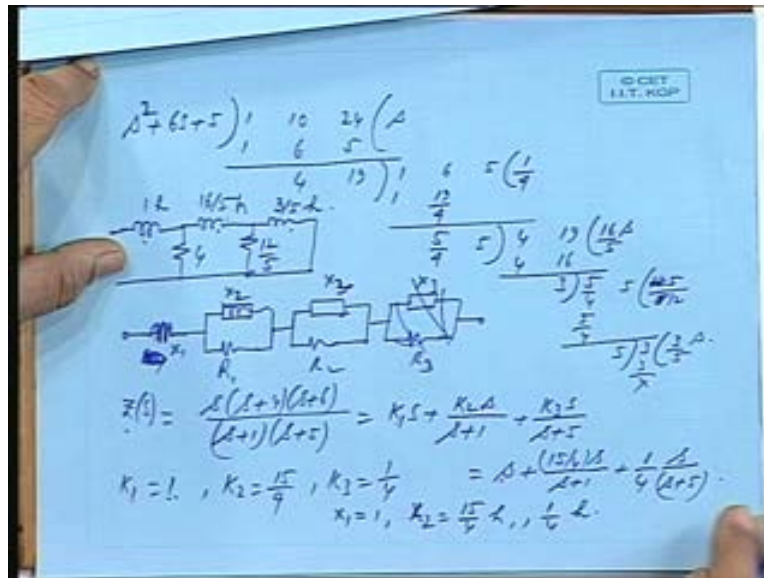 © CET
I.I.T. KGP
s² + 6s + 5 ) 1 10 24 ( s
1 6 5
4 19 ) 1 6 5 ( 1/4
1 19/4
5/4 5 ) 4 19 ( 16/5 s
4 16
3 ) 5/4 5 (
5/4
5 ) 3 ( 3/5 s
3
1 h 16/5 h 3/5 h.
4 12/5
x₁ x₂ R₁ R₂ R₃
Z(s) = s(s+4)(s+6) / (s+1)(s+5) = K₁s + K₂s/(s+1) + K₃s/(s+5)
K₁ = 1, K₂ = 15/4, K₃ = 1/4 = s + (15/4)s/(s+1) + 1/4 s/(s+5).
x₁ = 1, x₂ = 15/4 h, , 1/4 h.